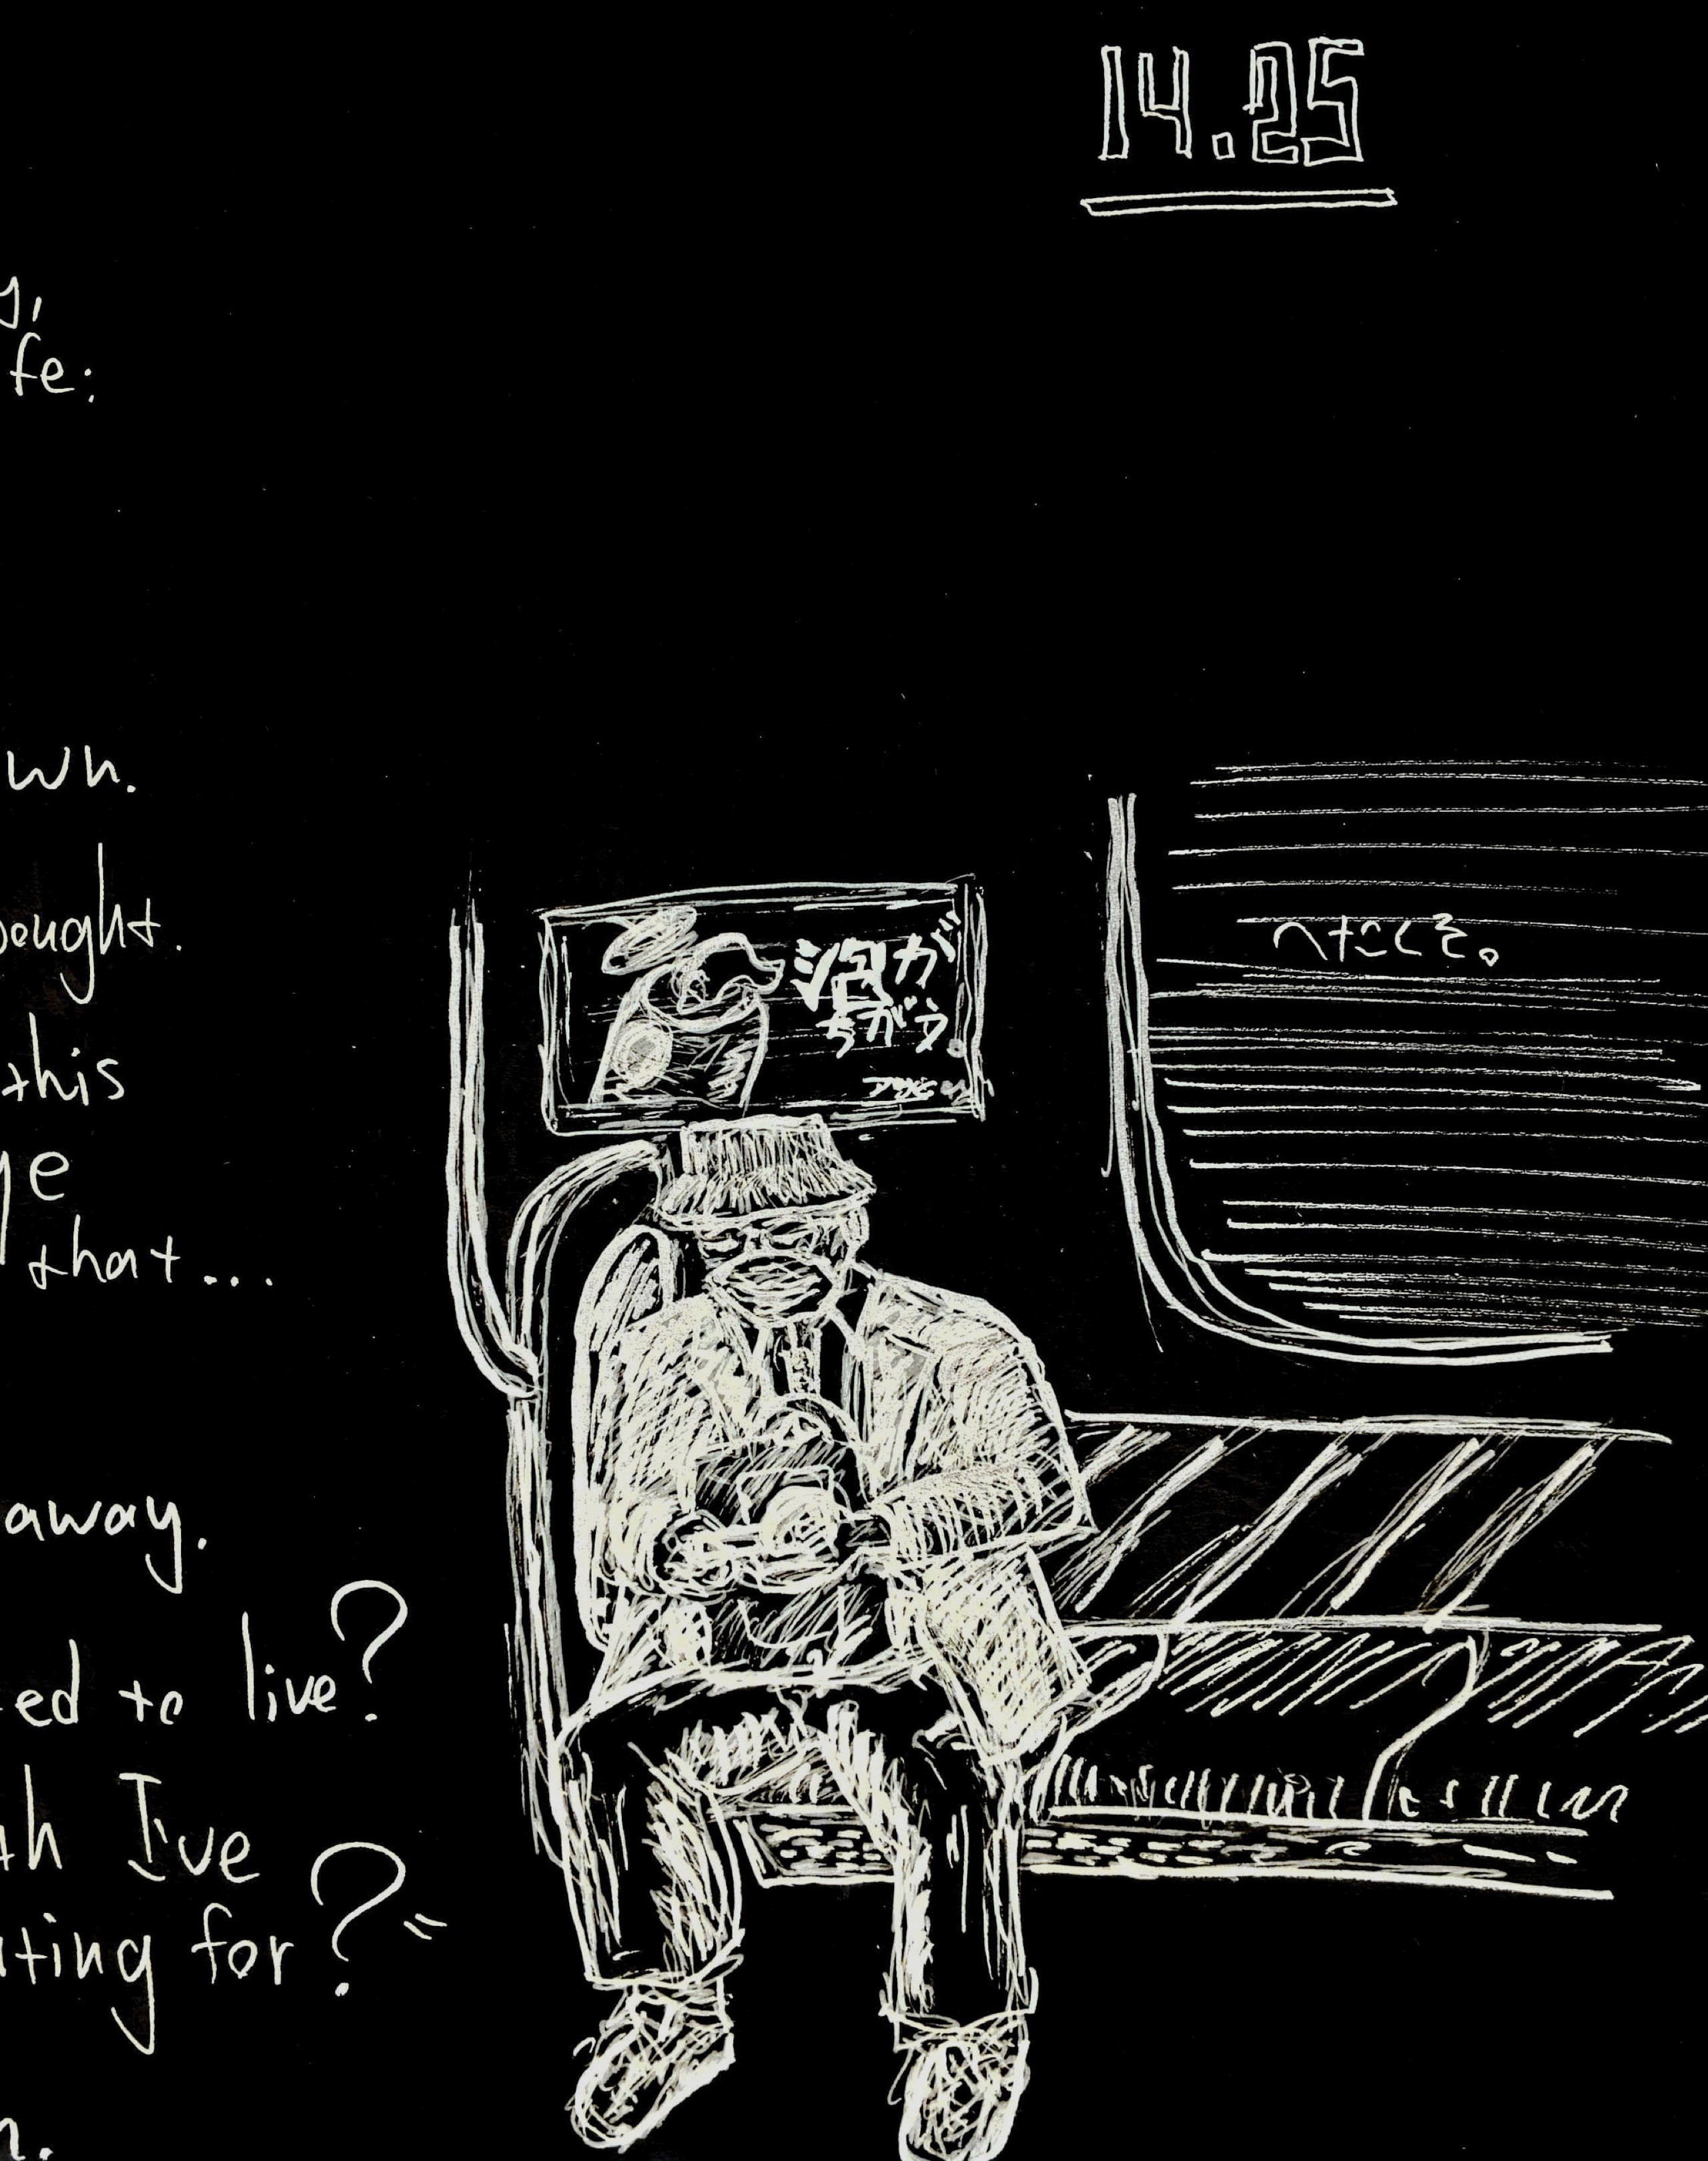 14.25
y,
fe:
wn.
ought.
へたくそ。
泡が
ちがう。
this
that...
away.
ed to live?
th I've
ting for?"
n.